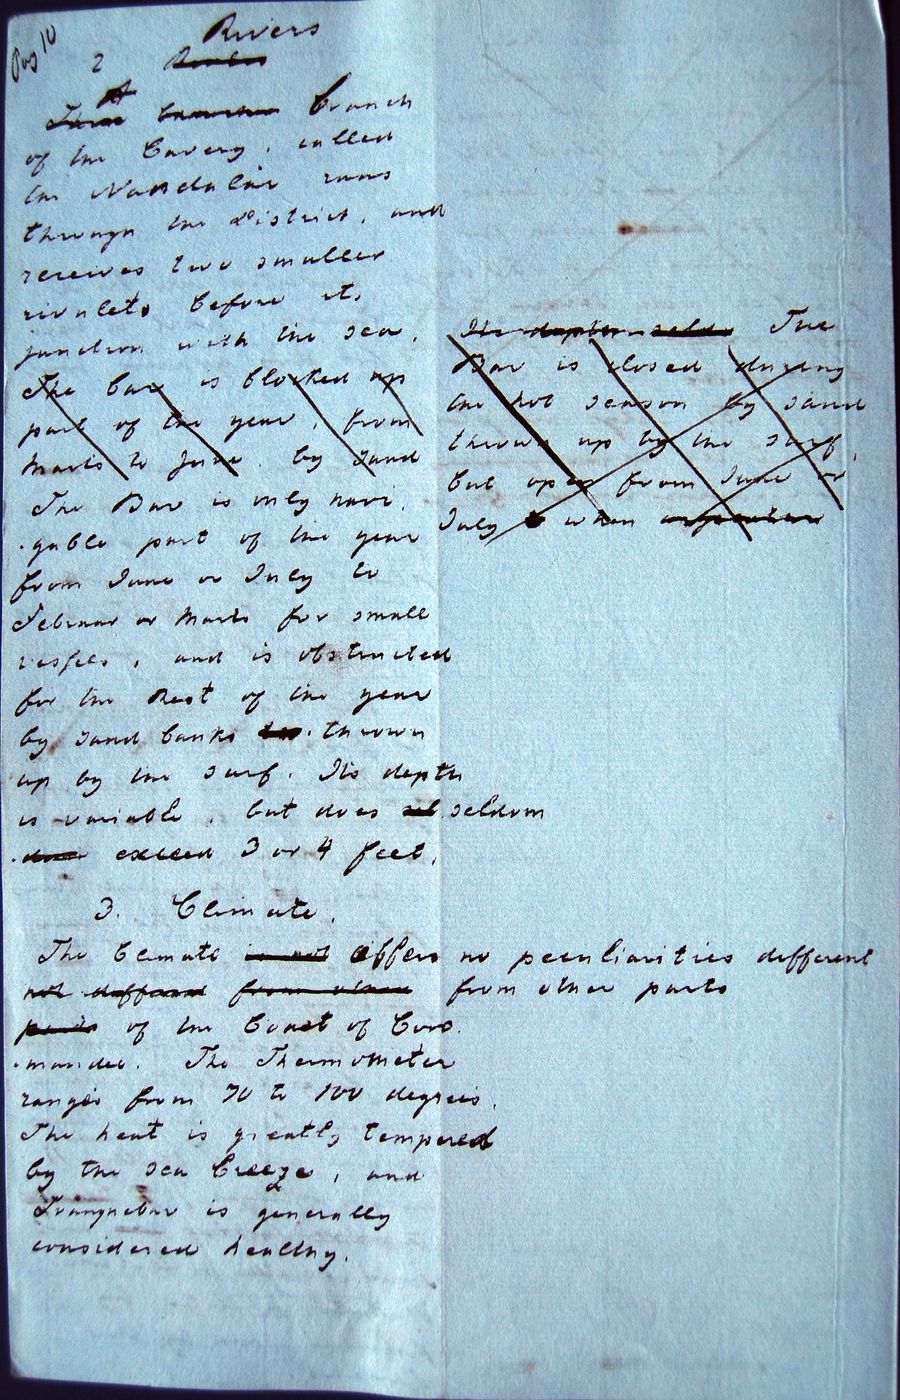 Pag 10
Rivers
2
A
branch
of the Cavery, called
the Nandalar runs
through the District, and
receives two smaller
rivulets before its
junction with the sea.
The bar is blocked up
part of the year, from
Marts to June. by sand
The Bar is only navi.
.gable part of the year
from June or July to
Februar or Marts for small
vessels, and is obstructed
for the Rest of the year
by sand banks thrown
up by the surf. Its depth
is variable, but does seldom
exceed 3 or 4 feet.
Its depth seld. The
Bar is closed during
the hot season by sand
thrown up by the surf,
but open from June or
July when
3. Climate.
The Climate is not offers no peculiarities different
not different from other from other parts
parts of the Coast of Coro.
.mandel. The Thermometer
ranges from 70 to 100 degrees.
The heat is greatly tempered
by the sea breeze, and
Tranquebar is generally
considered healthy.